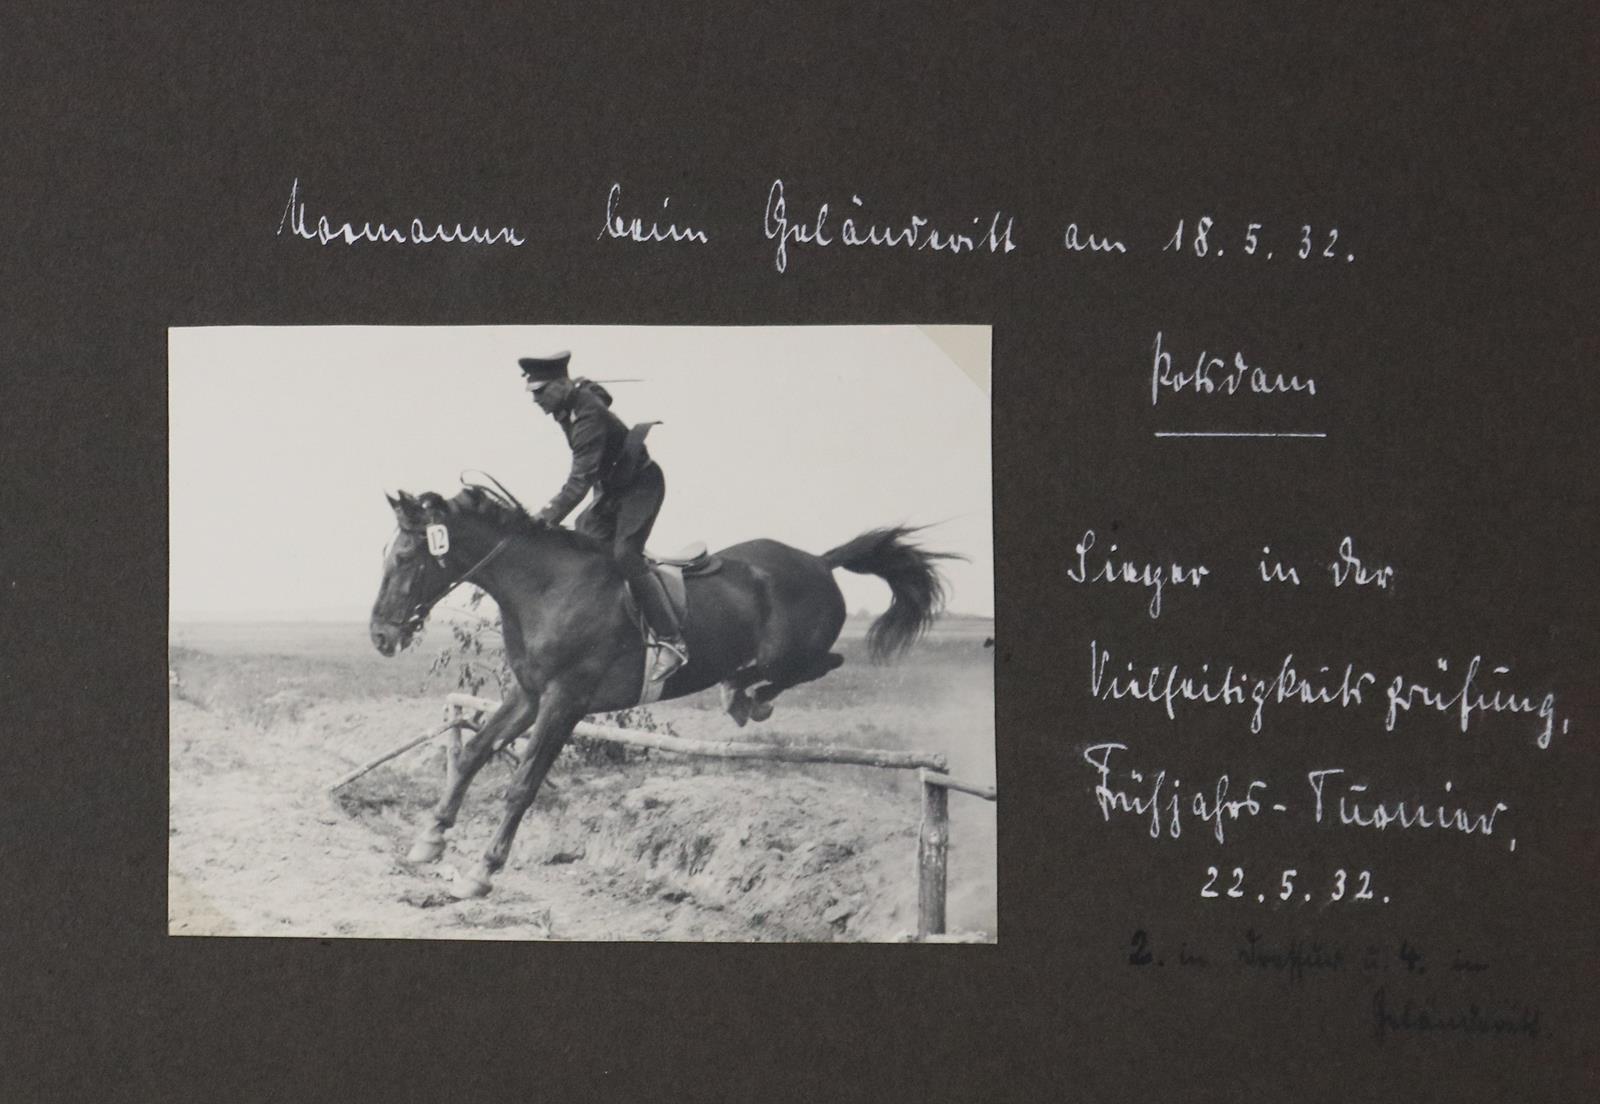 Normanne beim Geländeritt am 18.5.32.
Potsdam
12
Sieger in der
Vielseitigkeitsprüfung,
Frühjahrs-Turnier,
22.5.32.
2. in Dressur u. 4. in
Geländeritt.